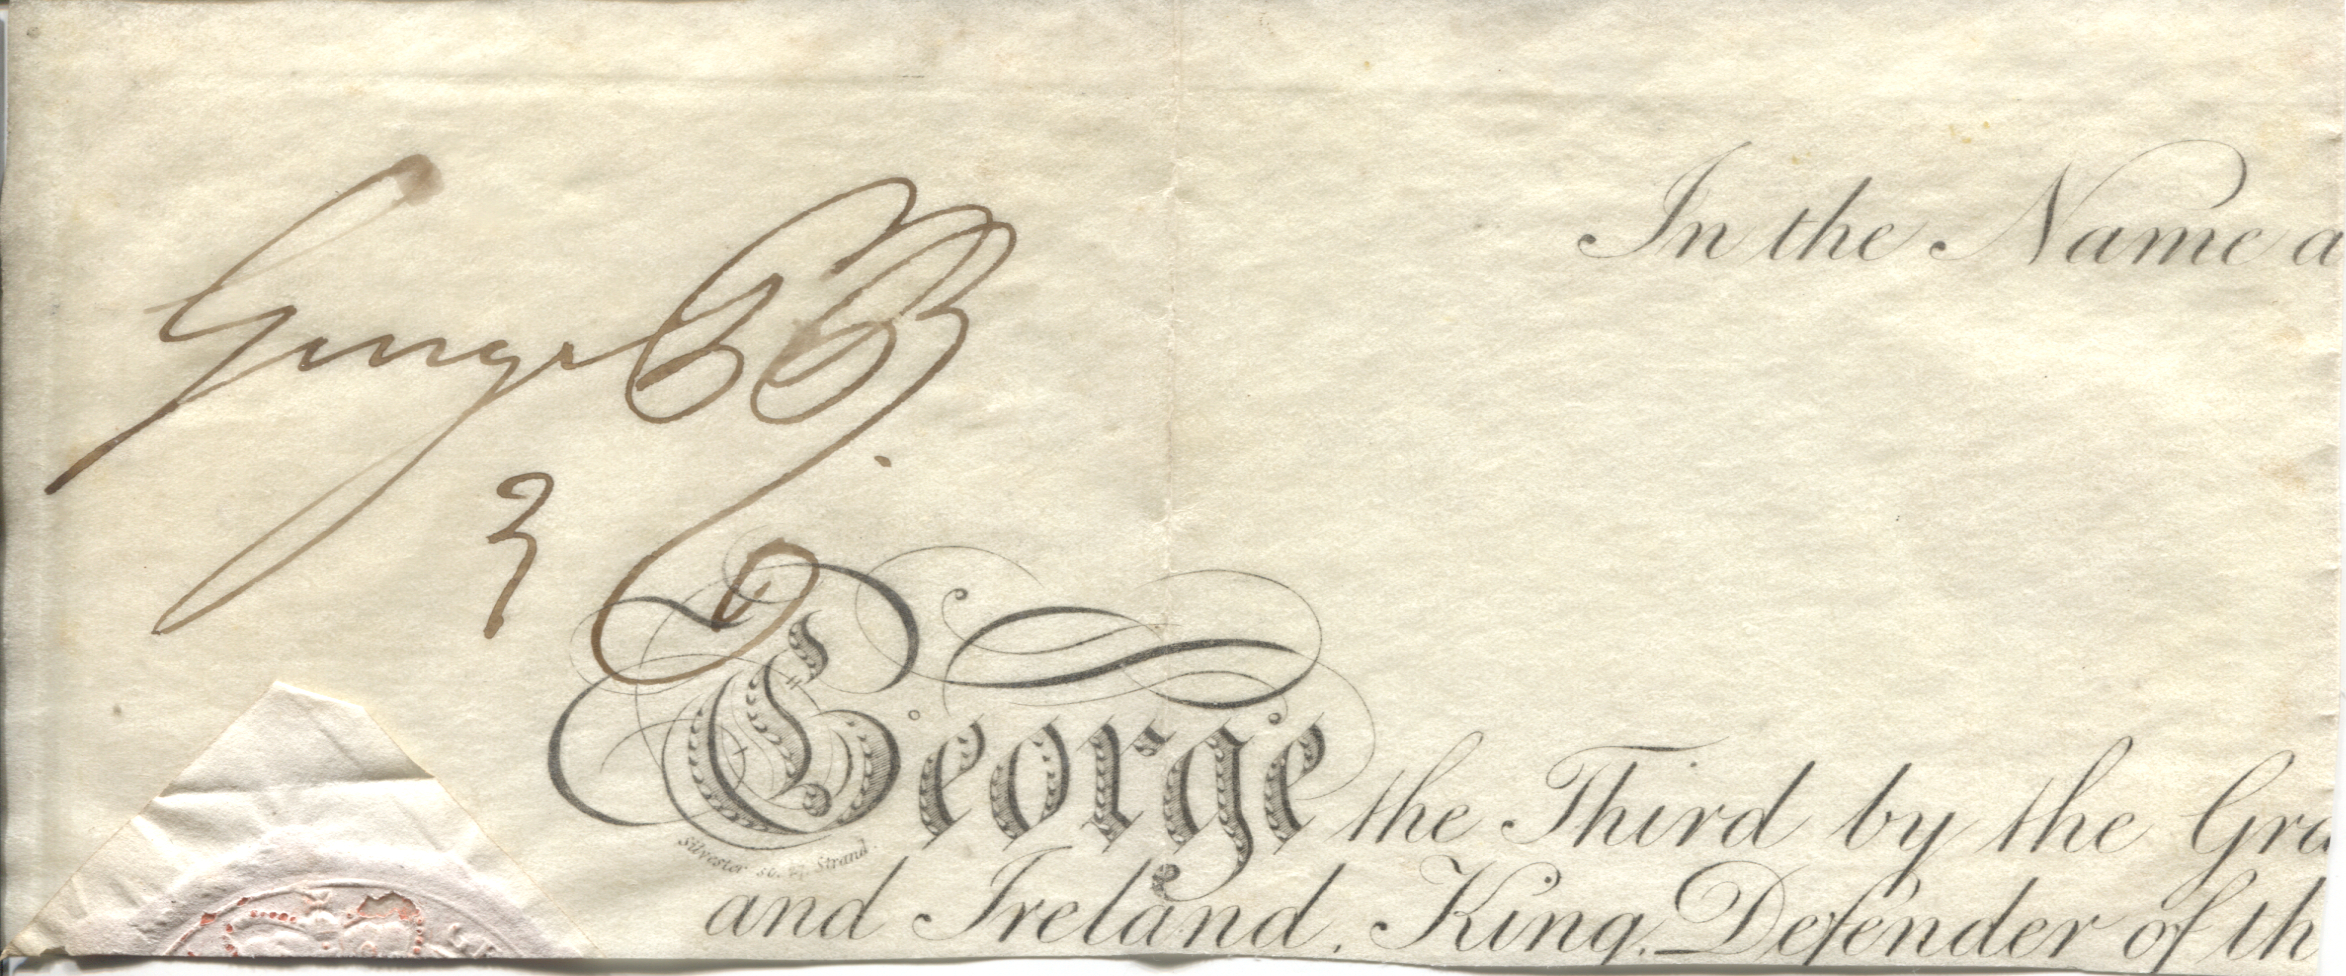 George P R.
In the Name a
3
George the Third by the Gra
Silvester sc. 27. Strand.
and Ireland, King, Defender of th